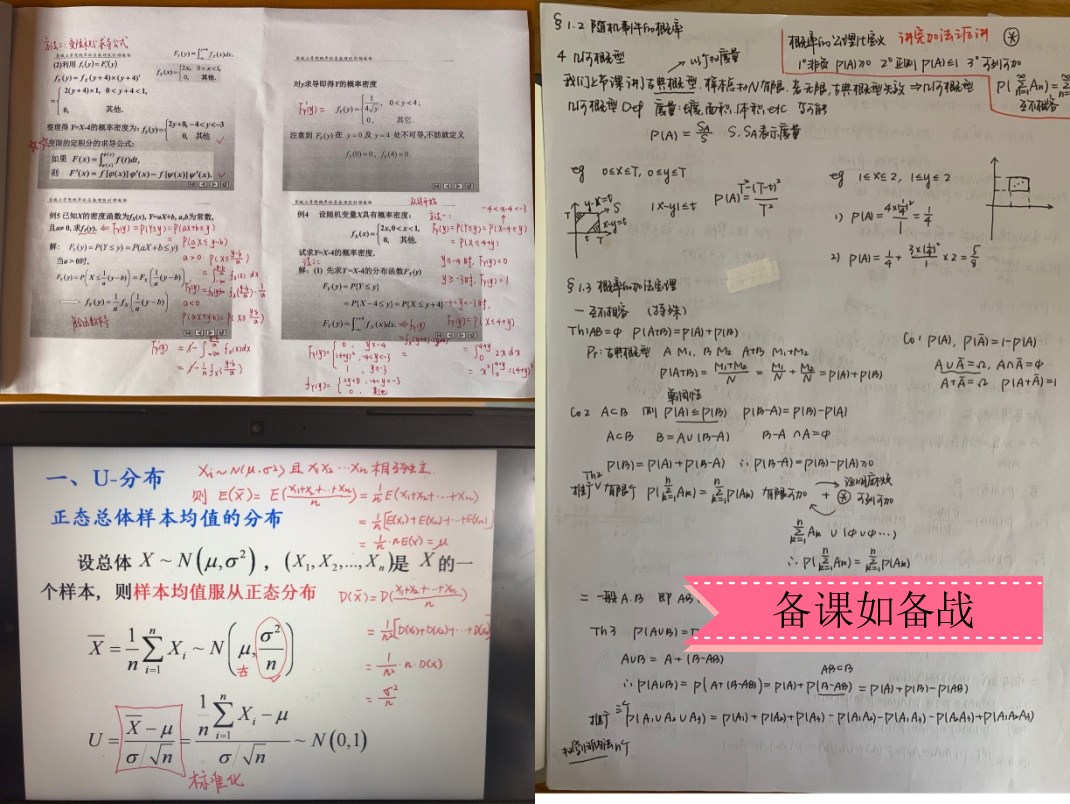 方法二：变限积分求导公式
(2)利用 f_Y(y)=F_Y'(y)
F_Y(y)=∫_{-∞}^{y+4} f_X(x)dx.
f_Y(y)=f_X(y+4)×(y+4)'
f_X(x)={2x, 0<x<1, 0, 其他.
={2(y+4)×1, 0<y+4<1, 0, 其他.
整理得 Y=X-4的概率密度为: f_Y(y)={2y+8, -4<y<-3 0, 其他
变限的定积分的求导公式:
如果 F(x)=∫_{ψ(x)}^{φ(x)} f(t)dt,
则 F'(x)=f[φ(x)]φ'(x)-f[ψ(x)]ψ'(x).
对y求导即得Y的概率密度
F_Y'(y)= f_Y(y)={1/(4√y), 0<y<4; 0, 其它.
注意到 F_Y(y) 在 y=0 及 y=4 处不可导,不妨就定义
f_Y(0)=0, f_Y(4)=0.
例5 已知X的密度函数为f_X(x), Y=aX+b, a,b为常数,
且a≠0, 求f_Y(y). ⇐ F_Y(y)=P(Y≤y)=P(ax+b≤y)
=P(ax≤y-b)
解: F_Y(y)=P(Y≤y)=P(aX+b≤y)
a>0 P(x≤(y-b)/a)
当a>0时,
F_Y(y)=P(X≤1/a(y-b))=F_X(1/a(y-b))
f_Y(y)=1/a f_X(1/a(y-b))
a<0
例4 设随机变量X具有概率密度:
f_X(x)={2x, 0<x<1, 0, 其他.
试求Y=X-4的概率密度.
解: (1) 先求Y=X-4的分布函数F_Y(y)
F_Y(y)=P{Y≤y}
=P{X-4≤y}=P{X≤y+4}
F_Y(y)=∫_{-∞}^{y+4} f_X(x)dx.
方法一:
-4<x-4<-3
F_Y(y)=P(Y≤y)=P(X-4≤y)
=P(X≤4+y)
y≤-4时, F_Y(y)=0
y≥-3时, F_Y(y)=1
-4<y<-3时,
F_Y(y)=P(X≤4+y)
=∫_0^{4+y} 2xdx
=x²|_0^{4+y}=(4+y)²
F_Y(y)={0, y≤-4 (4+y)², -4<y<-3 1, y≥-3
f_Y(y)={2y+8, -4<y<-3 0, 其他
一、U-分布
正态总体样本均值的分布
Xi~N(μ,σ²) 且 X1 X2 … Xn 相互独立
则 E(X̄)=E((X1+X2+…+Xn)/n)=1/n E(X1+X2+…+Xn)
=1/n[E(X1)+E(X2)+…+E(Xn)]
=1/n·nE(X)=μ
设总体 X~N(μ,σ²), (X₁,X₂,...,Xₙ)是 X 的一
个样本, 则样本均值服从正态分布
D(X̄)=D((X1+X2+…+Xn)/n)
=1/n²[D(X1)+D(X2)+…+D(Xn)]
=1/n²·n·D(X)
=σ²/n
X̄=1/n ∑_{i=1}^{n} Xᵢ~N(μ,σ²/n)
U=(X̄-μ)/(σ/√n)=(1/n ∑_{i=1}^{n} Xᵢ-μ)/(σ/√n)~N(0,1)
标准化
§1.2 随机事件的概率
概率的公理化定义 讲完加法后讲 ⊛
1°非负 P(A)≥0 2°正则 P(A)≤1 3°可列可加
4 几何概型
我们上节课讲了古典概型, 样本点切N有限. 若无限, 古典概型失效 ⇒几何概型
互不相容
几何概型 Def 度量:长度,面积,体积,etc
P(A)=S_A/S S, S_A表示度量
eg 0≤x≤T, 0≤y≤T
|x-y|≤t P(A)=(T²-(T-t)²)/T²
eg 1≤x≤2, 1≤y≤2
1) P(A)=(4×(1/4)²)/1=1/4
§1.3 概率的加法定理
一 互不相容 (特殊)
Th1 AB=φ P(A+B)=P(A)+P(B)
Pr: 古典概型 A M₁, B M₂ A+B M₁+M₂
P(A+B)=(M₁+M₂)/N=M₁/N+M₂/N=P(A)+P(B)
Co1 P(A), P(Ā)=1-P(A)
A∪Ā=Ω, A∩Ā=φ
A+Ā=Ω P(A+Ā)=1
单调性
Co2 A⊂B 则 P(A)≤P(B) P(B-A)=P(B)-P(A)
A⊂B B=A∪(B-A) B-A∩A=φ
P(B)=P(A)+P(B-A) ∴P(B-A)=P(B)-P(A)≥0
Th2
推广 有限个 P(∑_{k=1}^{n}Ak)=∑_{k=1}^{n}P(Ak) 有限可加
⊛ 可列可加
∑_{k=1}^{n}Ak ∪(φ∪φ…)
∴P(∑_{k=1}^{n}Ak)=∑_{k=1}^{n}P(Ak)
备课如备战
二 一般A.B 即 AB
Th3 P(A∪B)=
A∪B=A+(B-AB)
AB⊂B
∴P(A∪B)=P(A+(B-AB))=P(A)+P(B-AB)=P(A)+P(B)-P(AB)
推广 三个 P(A₁∪A₂∪A₃)=P(A₁)+P(A₂)+P(A₃)-P(A₁A₂)-P(A₁A₃)-P(A₂A₃)+P(A₁A₂A₃)